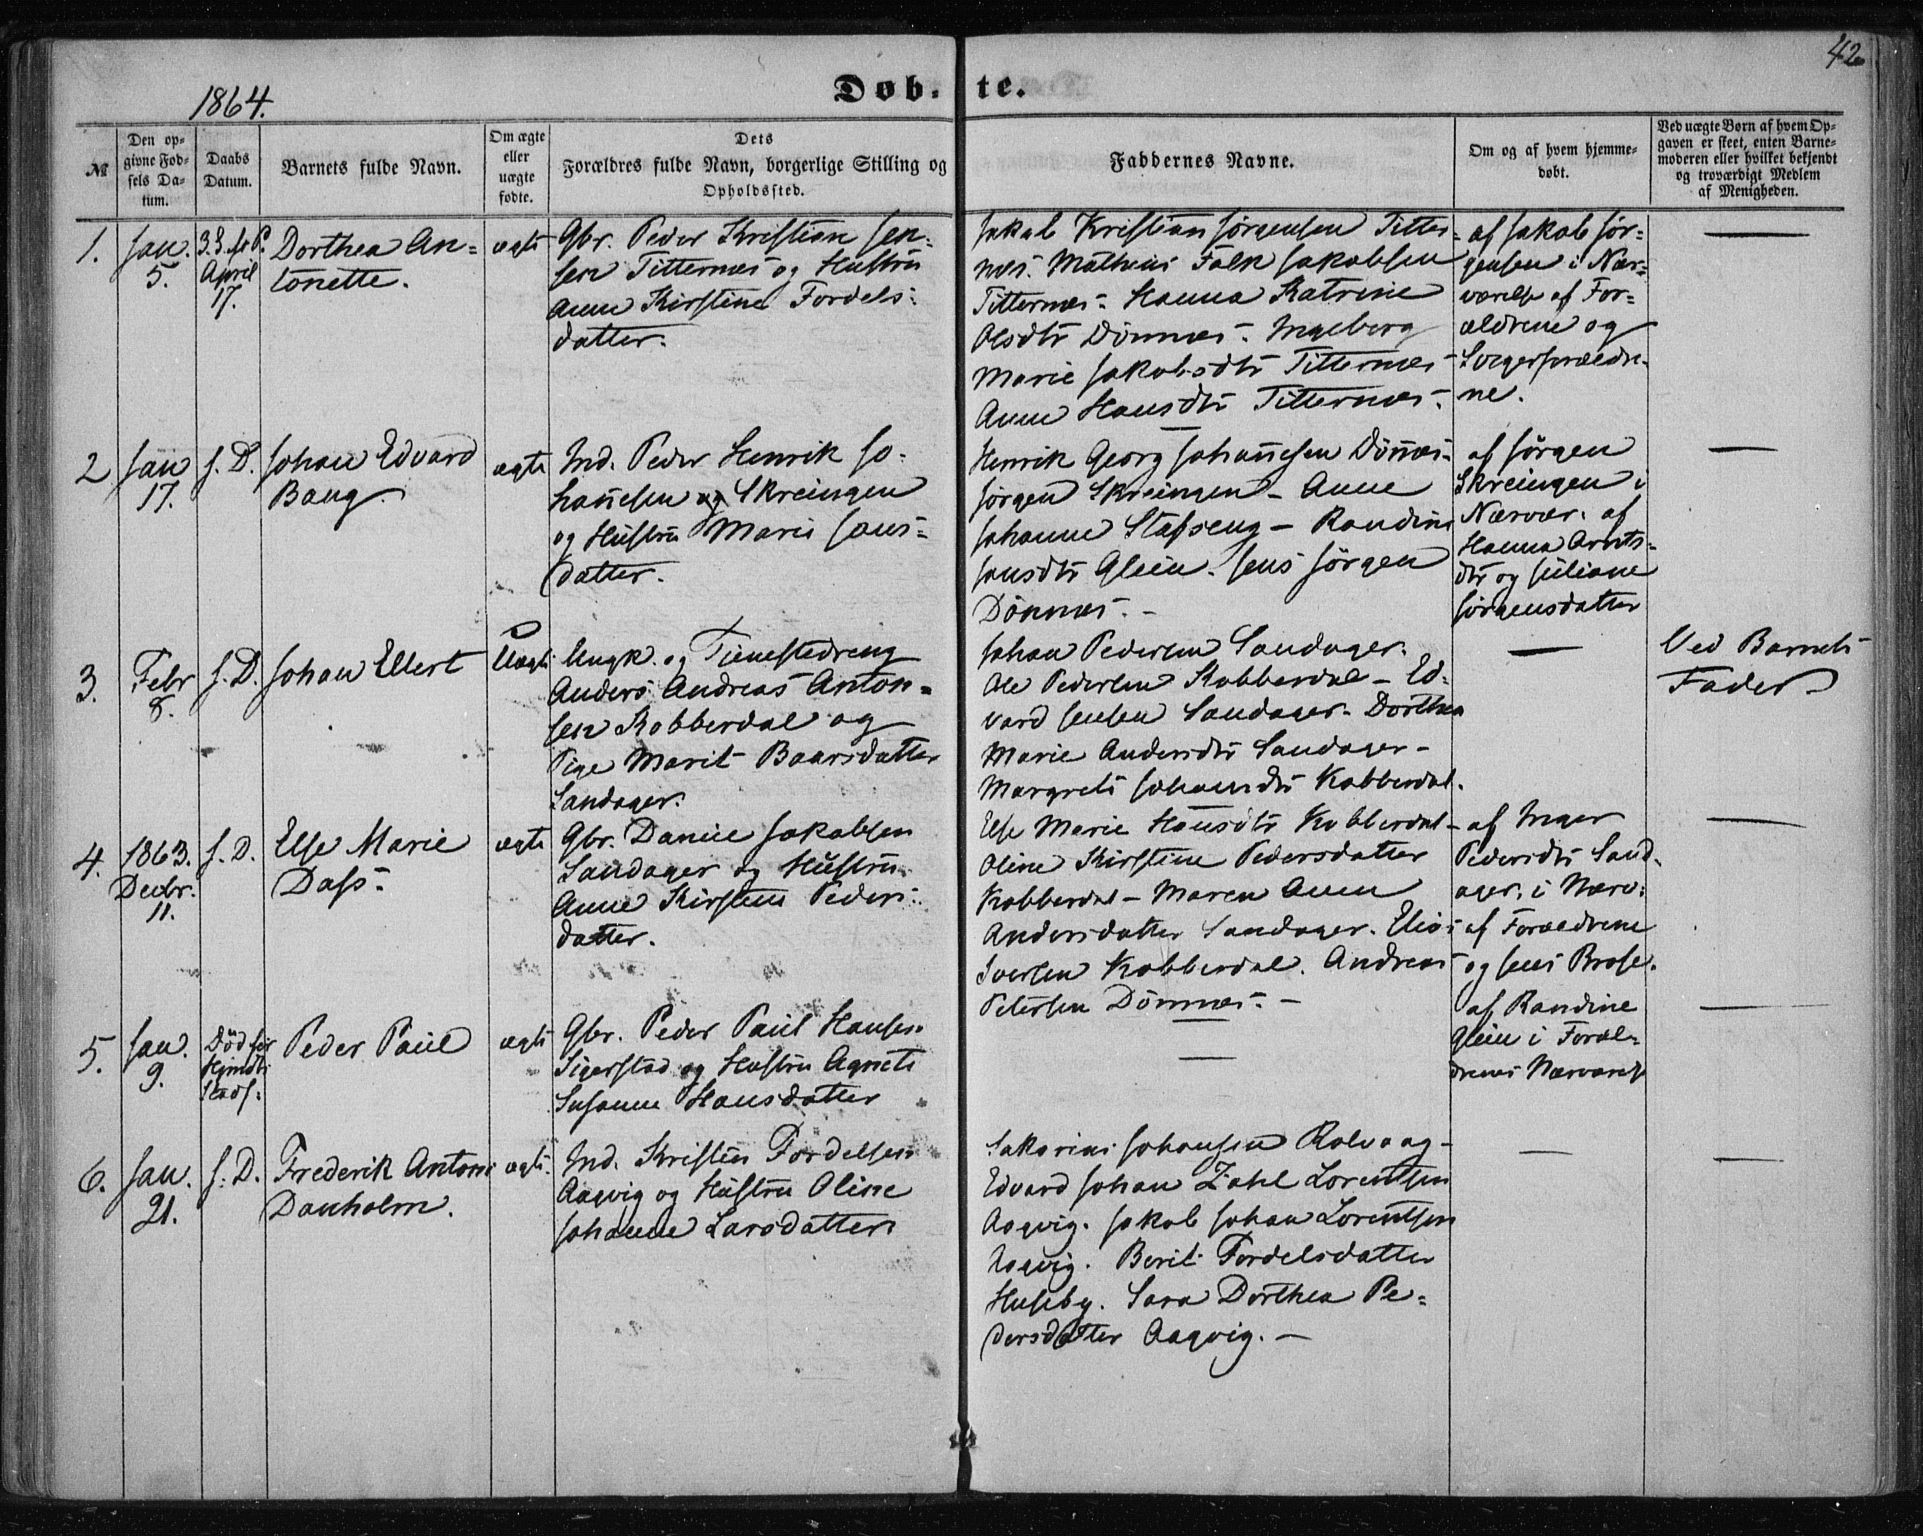 42
1864.
Døbte.
№
Den opgivne Fødsels Datum.
Daabs Datum.
Barnets fulde Navn.
Om ægte eller uægte fødte.
Dets Forældres fulde Navn, borgerlige Stilling og Opholdssted.
Faddernes Navne.
Om og af hvem hjemmedøbt.
Ved uægte Børn af hvem Opgaven er skeet, enten Barnemoderen eller hvilket bekjendt og troværdigt Medlem af Menigheden.
1.
Jan.
5.
3 S. f. P.
April
17.
Dorthea An-
tonette.
ægte
Gbr. Peder Kristian Jen-
sen Titternes og Hustru
Anne Kirstine Fordels-
datter.
Jakob Kristian Jørgensen Titter-
nes. Matheus Falk Jakobsen
Titternes. Hanna Katrine
Olsdtr Dønnes. Ingeborg
Marie Jakobsdtr Titternes
Anne Hansdtr Titternes.
af Jakob Jør-
gensen i Nær-
værelse af For-
ældrene og
Svigerforældre-
ne.
2
Jan
17.
s. D.
Johan Edvard
Bang
ægte
Ind. Peder Henrik Jo-
hansen Skreingen
og Hustru Maria Jons-
datter.
Henrik Georg Johansen Dønnes-
Jørgen Skreingen - Anne
Johanne Stafseng - Randine
Jonsdtr Glein. Jens Jørgen
Dønnes.
af Jørgen
Skreingen i
Nærvær. af
Hanna Arnts-
dtr og Juliane
Jørgensdatter
3.
Febr
8.
s. D.
Johan Ellert
Uægte
Ungk. og Tjenestedreng
Anders Andreas Anton-
sen Kobberdal og
Pige Marit Baarsdatter
Sandager.
Johan Pedersen Sandager.
Ole Pedersen Kobberdal - Ed-
vard Jensen Sandager. Dorthea
Marie Andersdtr Sandager -
Margrete Johansdtr Kobberdal.
Ved Barnets
Fader
4.
1863.
Decbr.
11.
s. D.
Else Marie
Dass.
ægte
Gbr. Daniel Jakobsen
Sandager og Hustru
Anne Kirstine Peders-
datter.
Else Marie Hansdtr Kobberdal -
Oline Kirstine Pedersdatter
Kobberdal - Maren Anna
Andersdatter Sandager. Elias
Iversen Kobberdal. Andreas
Petersen Dønnes. -
af Inger
Pedersdtr Sand-
ager. i Nærv.
af Forældrene
og Jens Brose.
5.
Jan.
9.
Død før
Stadf.
Peder Paul
ægte
Gbr. Peder Paul Hansen
Sigerstad og Hustru Agnete
Susanne Hansdatter
af Randine
Glein i Foræl-
drenes Nærværelse
6.
Jan.
21.
s. D.
Frederik Anton
Danholm.
ægte
Ind. Kristen Fordelsen
Aaqvig og Hustru Oline
Johanne Larsdatter
Sakarias Johansen Rølvaag -
Edvard Johan Zahl Lorentsen
Aaqvig. Jakob Johan Lorentsen
Aaqvig. Berit Fordelsdatter
Huseby. Sara Dorthea Pe-
dersdatter Aaqvig. -